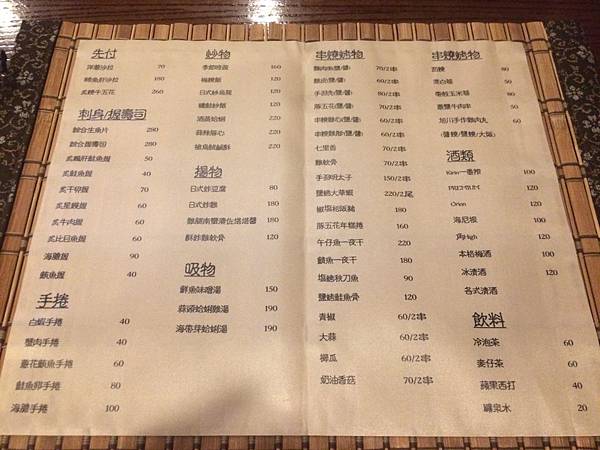 先付
洋蔥沙拉 70
鱈魚肝沙拉 180
炙燒牛五花 260
刺身/握壽司
綜合生魚片 280
綜合握壽司 280
炙鵝肝鮭魚握 50
炙鮭魚握 40
炙干貝握 70
炙星鰻握 60
炙牛肉握 60
炙比目魚握 60
海膽握 90
鮪魚握 40
手捲
白蝦手捲 40
蟹肉手捲 40
蔥花鮪魚手捲 60
鮭魚卵手捲 80
海膽手捲 100
炒物
季節時蔬 160
梅粿飯 120
日式炒烏龍 120
鐵鮭炒飯 120
酒蒸蛤蜊 220
蒜辣雞心 120
椒鳥賊鹹酥 160
揚物
日式炸豆腐 80
日式炸雞 180
雞腿南蠻漬佐塔塔醬 180
酥炸雞軟骨 120
吸物
鮮魚味噌湯 150
蒜頭蛤蜊雞湯 190
海帶芽蛤蜊湯 190
串燒烤物
雞肉魚(鹽/醬) 70/2串
雞皮(鹽/醬) 60/2串
手羽先(鹽/醬) 80/2串
豚五花(鹽/醬) 70/2串
串燒雞心(鹽/醬) 60/2串
串燒雞胗(鹽/醬) 60/2串
七里香 70/2串
雞軟骨 70/2串
手羽明太子 150/2串
鹽烤大草蝦 220/2尾
椒鹽松阪豬 180
豚五花年糕捲 180
午仔魚一夜干 220
鯖魚一夜干 180
塩烤秋刀魚 90
鹽烤鮭魚骨 120
青椒 60/2串
大蒜 60/2串
櫛瓜 60/2串
奶油香菇 70/2串
串燒烤物
茄燒 80
筊白筍 50
帶殼玉米筍 80
蔥鹽牛肉串 50
旭川手作雞肉丸 60
(鹽燒/醬燒/大阪)
酒類
Kirin一番搾 100
PREMIUM 120
Orion 120
海尼根 100
角High 120
本格梅酒 120
冰清酒 120
各式清酒
飲料
冷泡茶 60
麥仔茶 60
蘋果西打 40
礦泉水 20